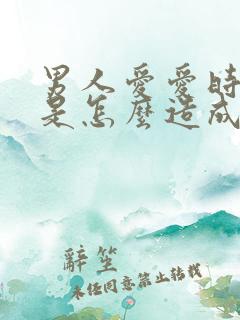 男人愛愛時
是怎麼造成
辭笙
未經同意禁止轉載